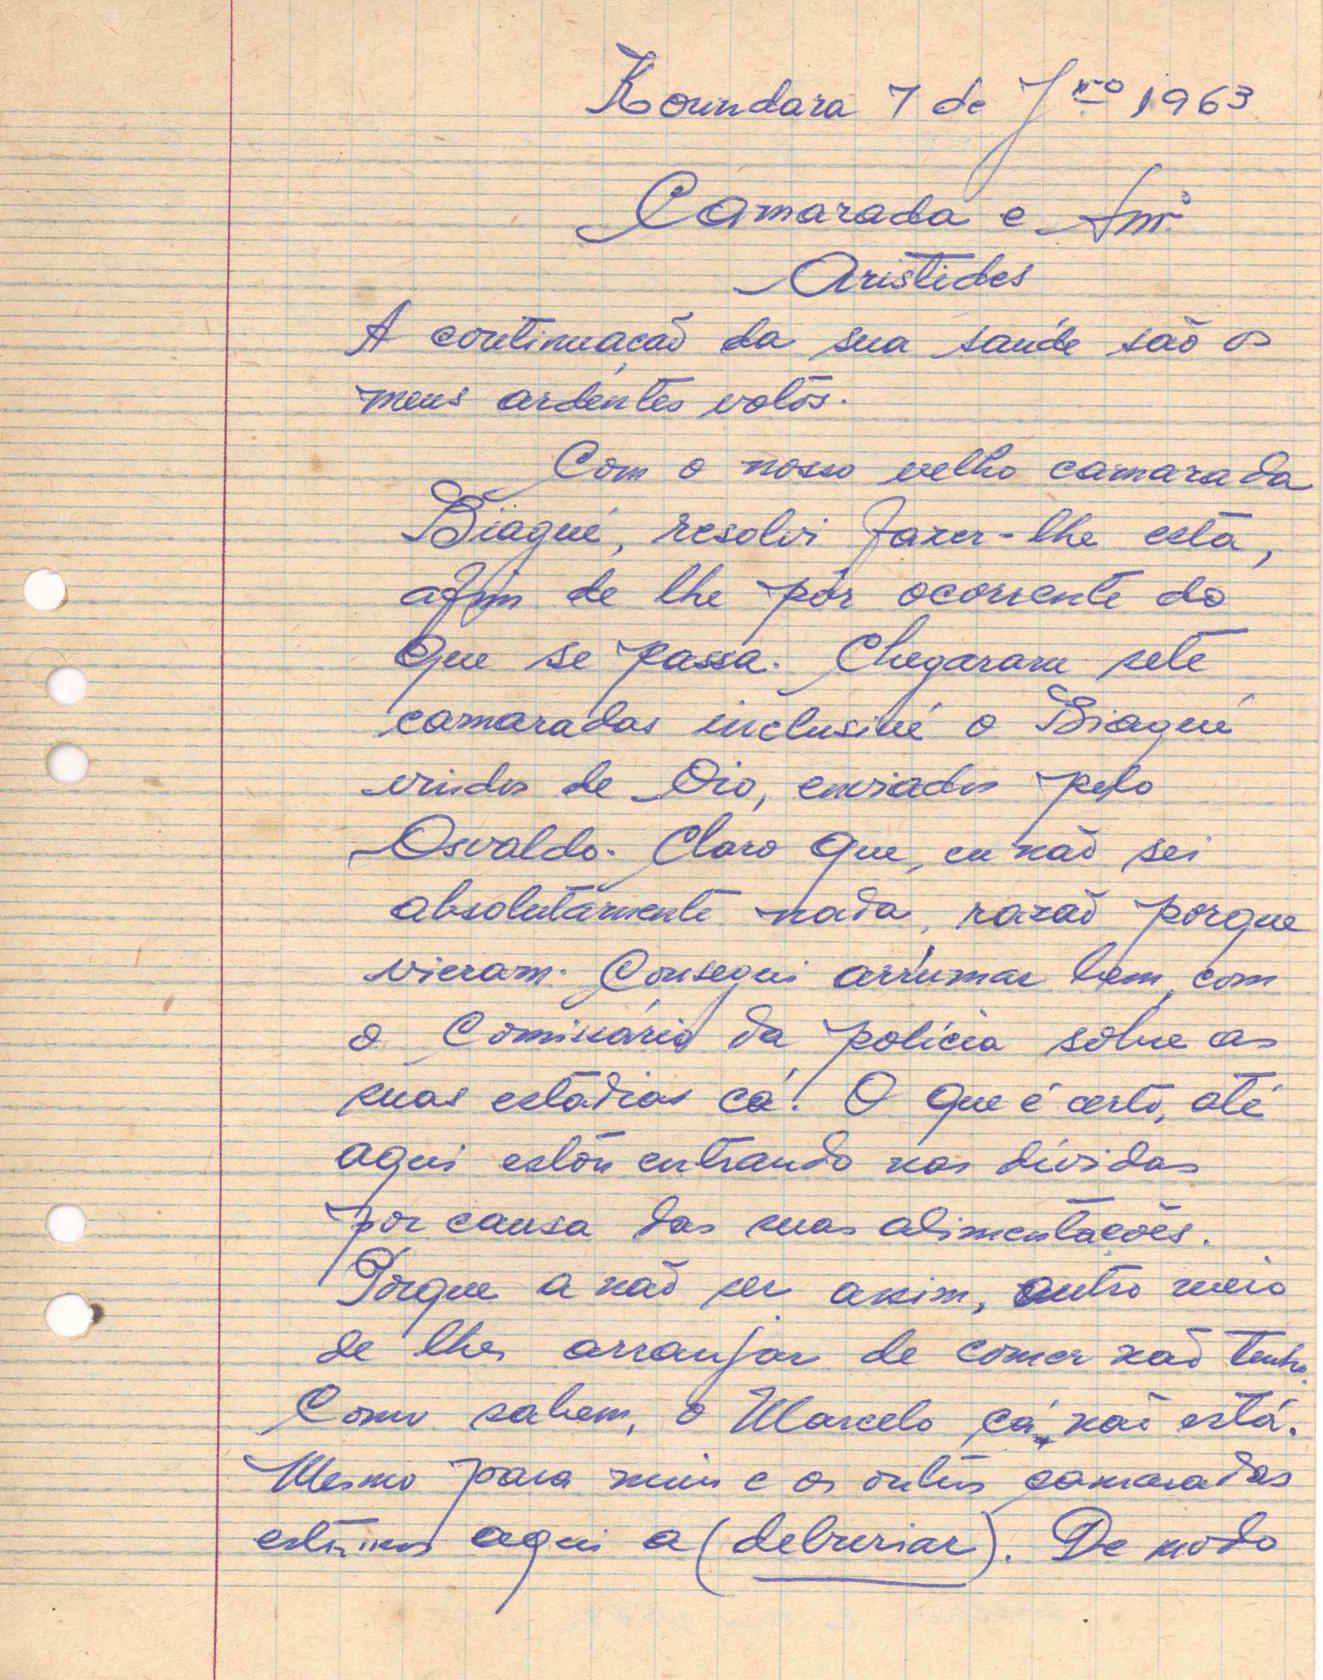 Koundara 7 de Jrº 1963
Camarada e Amº
Aristides
A continuação da sua saúde são os
meus ardentes votos.
Com o nosso velho camarada
Biagué, resolvi fazer-lhe esta,
afim de lhe pôr ocorrente do
que se passa. Chegaram sete
camaradas inclusivé o Biagué
vindos de Oio, enviados pelo
Osvaldo. Claro que, eu não sei
absolutamente nada, razão porque
vieram. Consegui arrumar bem, com
o Comissário da polícia sobre as
suas estadias cá. O que é certo, até
aqui estou entrando nas dívidas
por causa das suas alimentações.
Porque a não ser assim, outro meio
de lhes arranjar de comer não tenho.
Como sabem, o Marcelo cá não está.
Mesmo para mim e os outros camaradas
estamos aqui a (debruriar). De modo